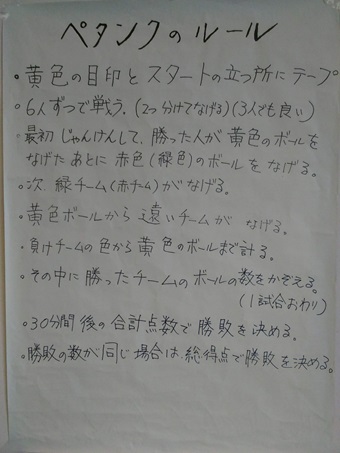 ペタンクのルール
・黄色の目印とスタートの立つ所にテープ
・6人ずつで戦う。(2つ分けてなげる)(3人でも良い)
・最初じゃんけんして、勝った人が黄色のボールを
なげたあとに赤色(緑色)のボールをなげる。
・次、緑チーム(赤チーム)がなげる。
・黄色ボールから遠いチームがなげる。
・負けチームの色から黄色のボールまで計る。
・その中に勝ったチームのボールの数をかぞえる。
(1試合おわり)
・30分間後の合計点数で勝敗を決める。
・勝敗の数が同じ場合は総得点で勝敗を決める。